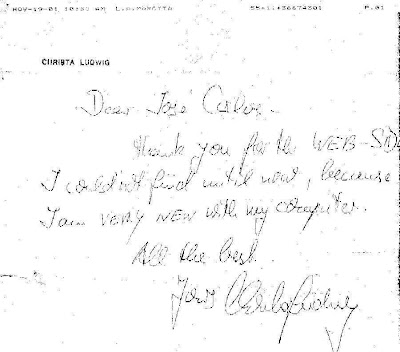 NOV-19-01 10:50 AM L.A.MOROTTA P.01
CHRISTA LUDWIG
Dear José Carlos.
Thank you for the WEB-Side
I could'nt find until now, because
I am VERY NEW with my computer.
All the best.
Yours Christa Ludwig